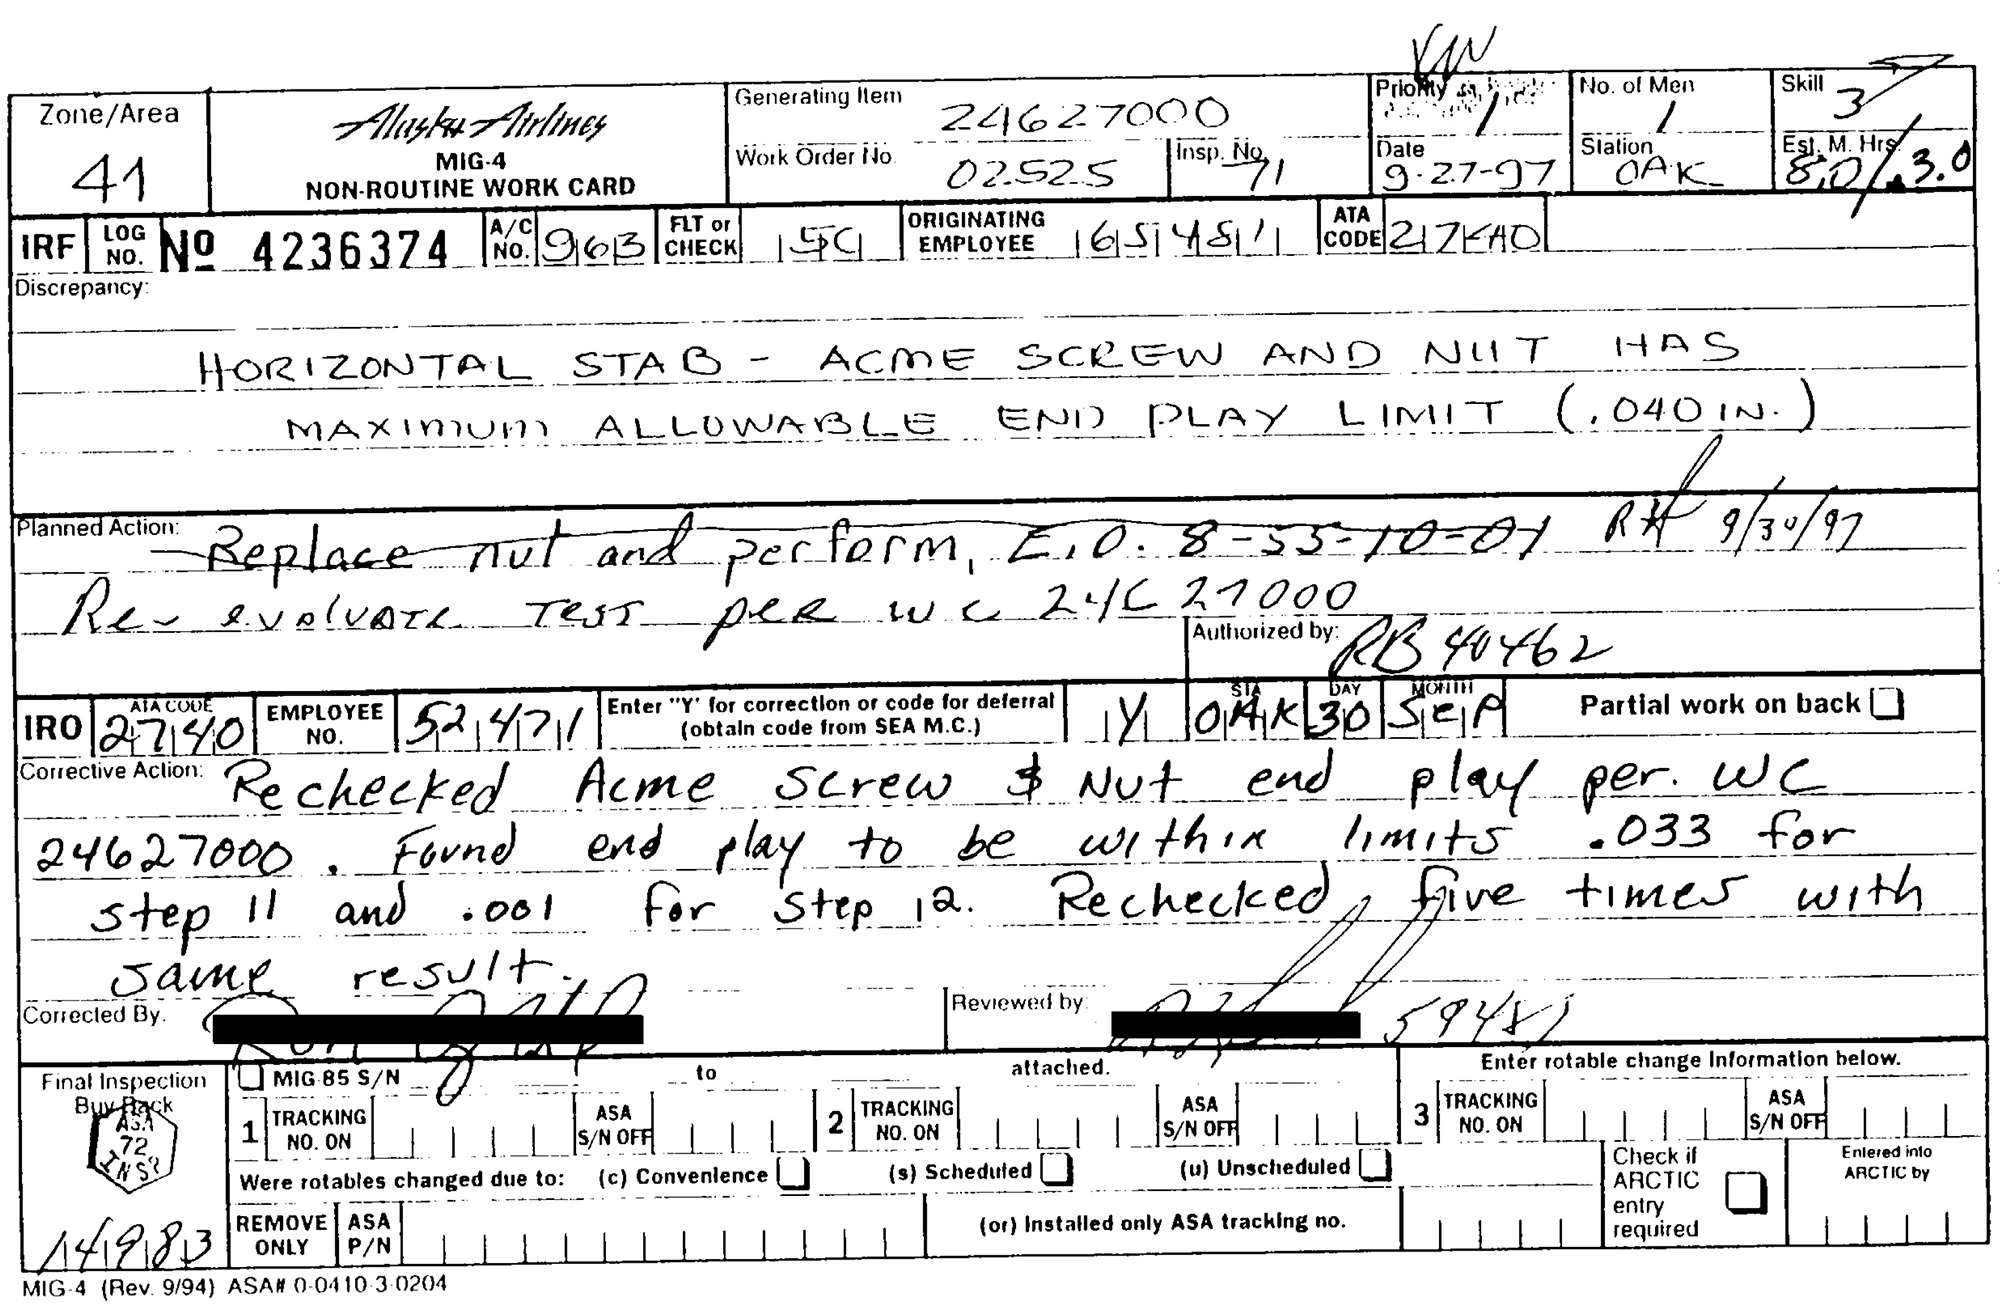 Zone/Area
41
Alaska Airlines
MIG-4
NON-ROUTINE WORK CARD
Generating Item 24627000
Work Order No. 02525
Insp. No. 71
Priority 1
Date 9-27-97
No. of Men 1
Station OAK
Skill 3
Est. M. Hrs. 8.0/3.0
IRF
LOG NO. Nº 4236374
A/C NO. 963
FLT or CHECK 5C
ORIGINATING EMPLOYEE
ATA CODE
Discrepancy:
HORIZONTAL STAB - ACME SCREW AND NUT HAS
MAXIMUM ALLOWABLE END PLAY LIMIT (.040 IN.)
Planned Action: Replace nut and perform, E.O. 8-55-10-01 9/30/97
Re-evaluate TEST per WC 24627000
Authorized by: RB 40462
IRO
ATA CODE 2740
EMPLOYEE NO. 52471
Enter "Y' for correction or code for deferral
(obtain code from SEA M.C.)
Y
STA OAK
DAY 30
MONTH Sep
Partial work on back
Corrective Action: Rechecked Acme Screw & Nut end play per. WC
24627000. Found end play to be within limits .033 for
step 11 and .001 for step 12. Rechecked five times with
same result.
Corrected By.
Reviewed by:
Final Inspection
Buy Back
ASA
72
INSP
14983
MIG-85 S/N to attached.
Enter rotable change Information below.
1 TRACKING NO. ON
ASA S/N OFF
2 TRACKING NO. ON
ASA S/N OFF
3 TRACKING NO. ON
ASA S/N OFF
Were rotables changed due to: (c) Convenience (s) Scheduled (u) Unscheduled
Check if
ARCTIC
entry
required
Entered into
ARCTIC by
REMOVE ONLY
ASA P/N
(or) Installed only ASA tracking no.
MIG-4 (Rev. 9/94) ASA# 0-0410-3-0204